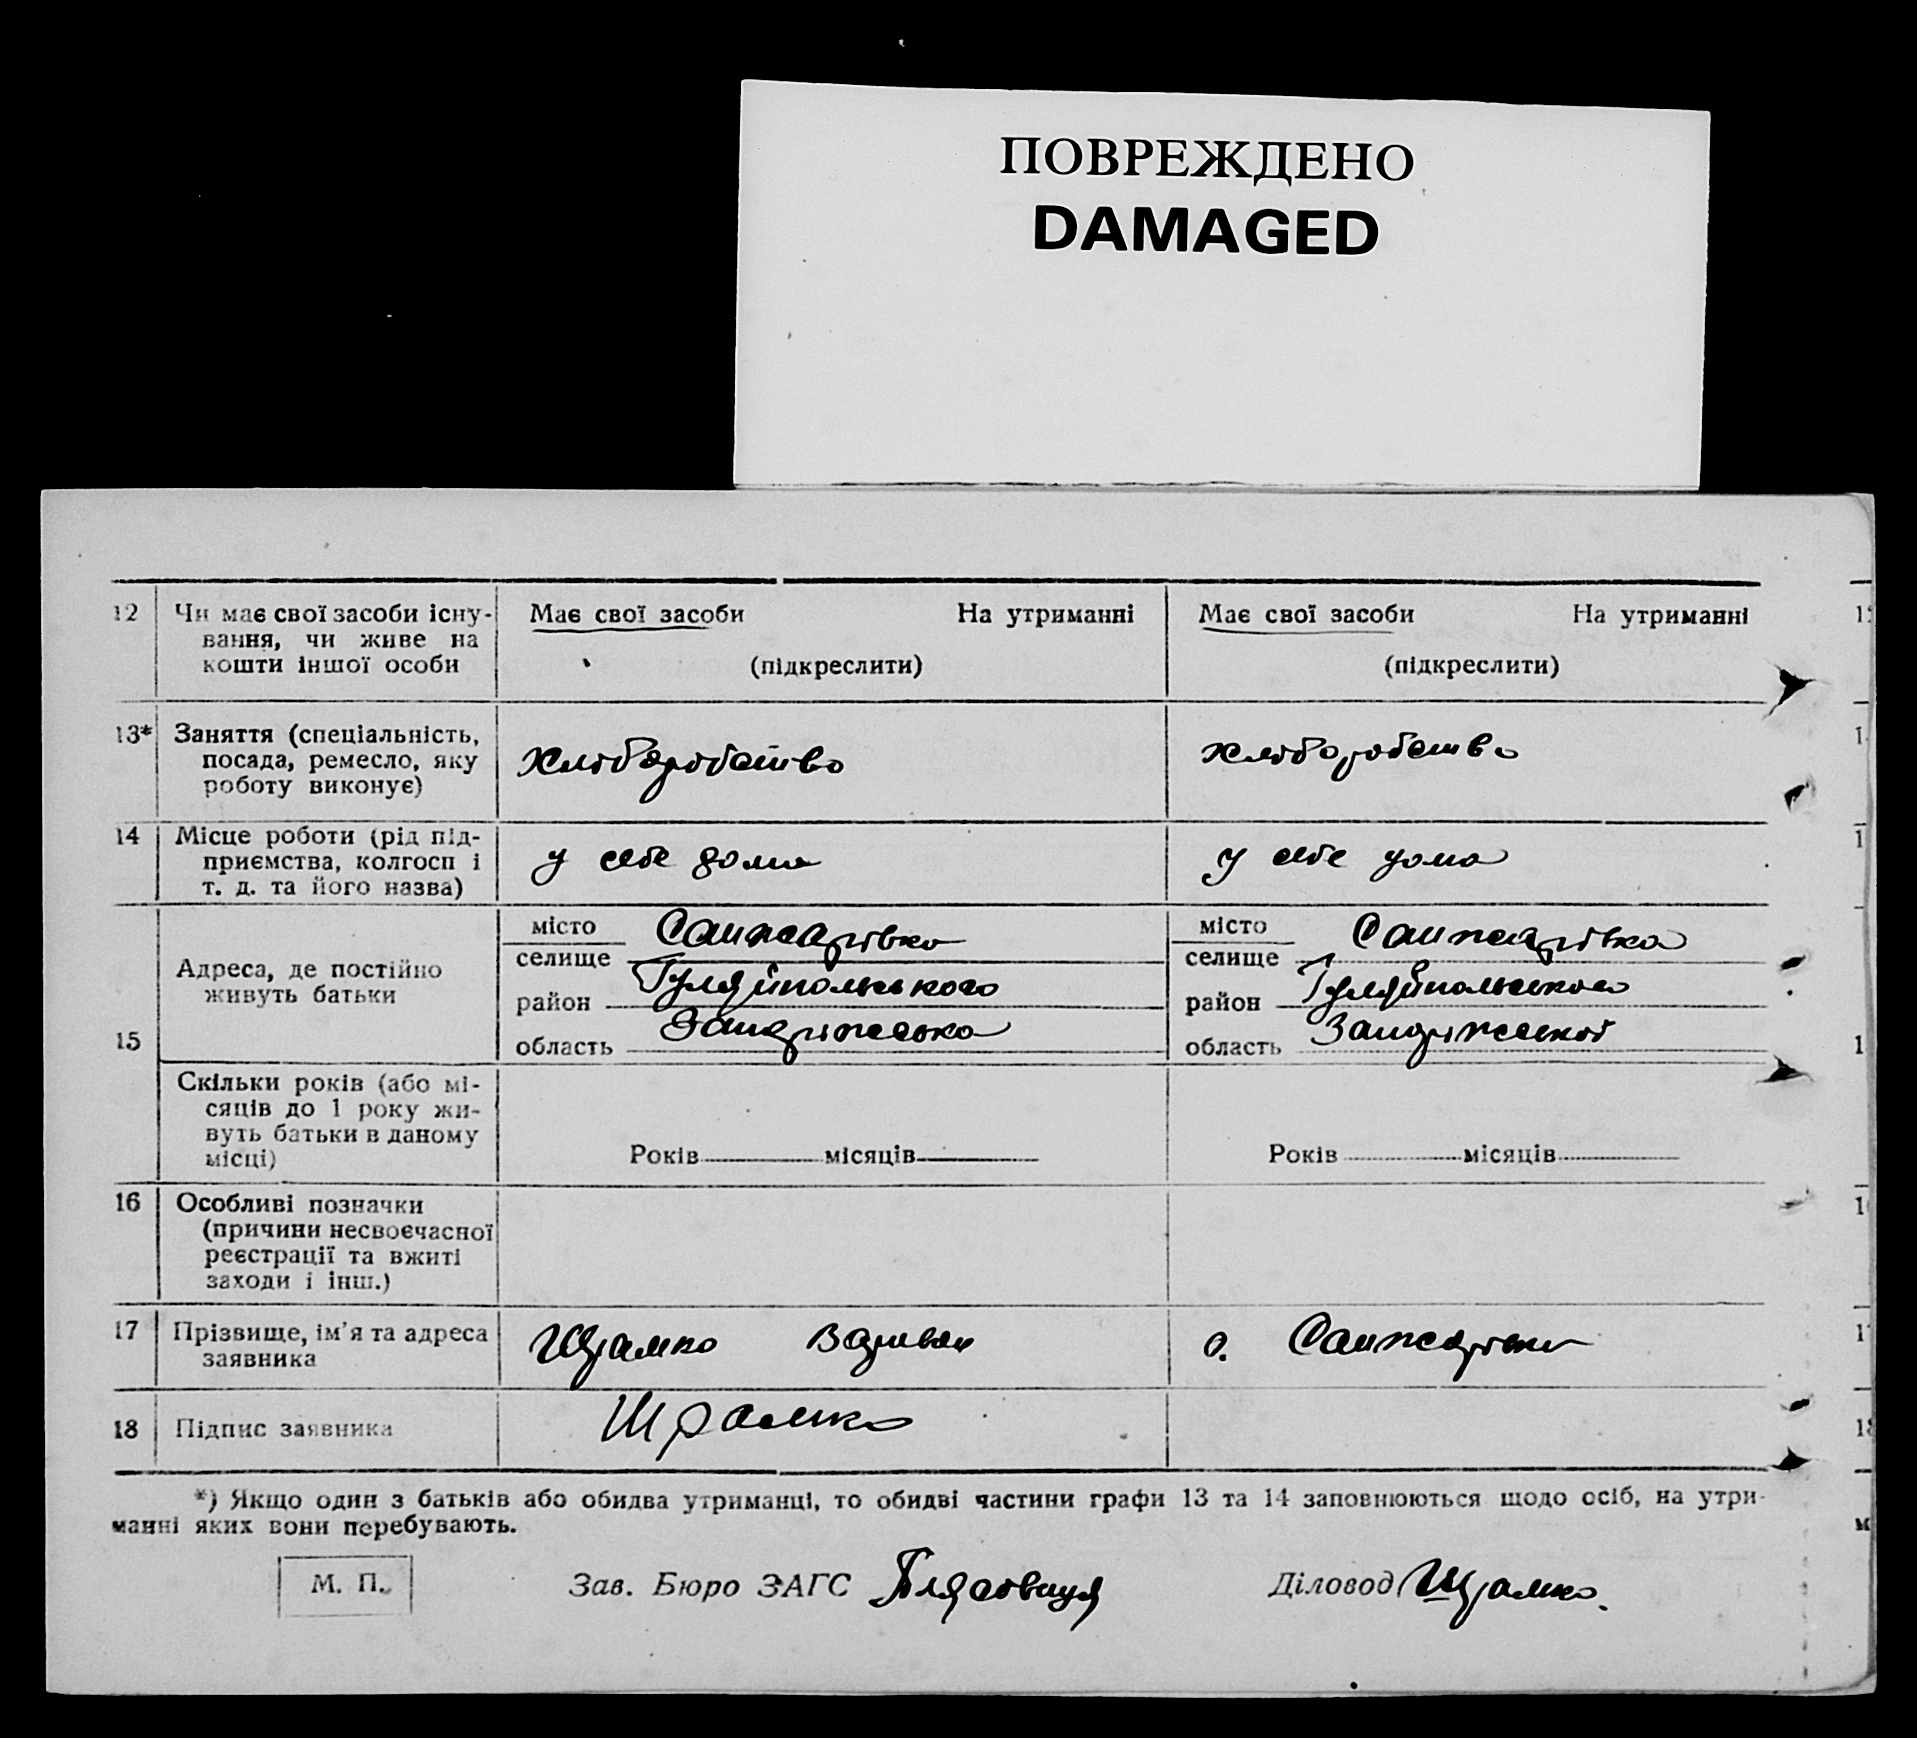 ПОВРЕЖДЕНО
DAMAGED
12 Чи має свої засоби існу-
вання, чи живе на
кошти іншої особи
Має свої засоби На утриманні
(підкреслити)
Має свої засоби На утриманні
(підкреслити)
13* Заняття (спеціальність,
посада, ремесло, яку
роботу виконує)
хліборобство
хліборобство
14 Місце роботи (рід під-
приємства, колгосп і
т. д. та його назва)
у себе дома
у себе дома
15
Адреса, де постійно
живуть батьки
місто Санжарівка
селище
район Гуляйпольського
область Запоріжська
місто Санжарівка
селище
район Гуляйпольського
область Запоріжської
Скільки років (або мі-
сяців до 1 року жи-
вуть батьки в даному
місці)
Років місяців
Років місяців
16 Особливі позначки
(причини несвоєчасної
реєстрації та вжиті
заходи і інш.)
17 Прізвище, ім'я та адреса
заявника
Шрамко
с. Санжарівка
18 Підпис заявника
Шрамко
*) Якщо один з батьків або обидва утриманці, то обидві частини графи 13 та 14 заповнюються щодо осіб, на утри-
манні яких вони перебувають.
М. П.
Зав. Бюро ЗАГС
Діловод Шрамко.